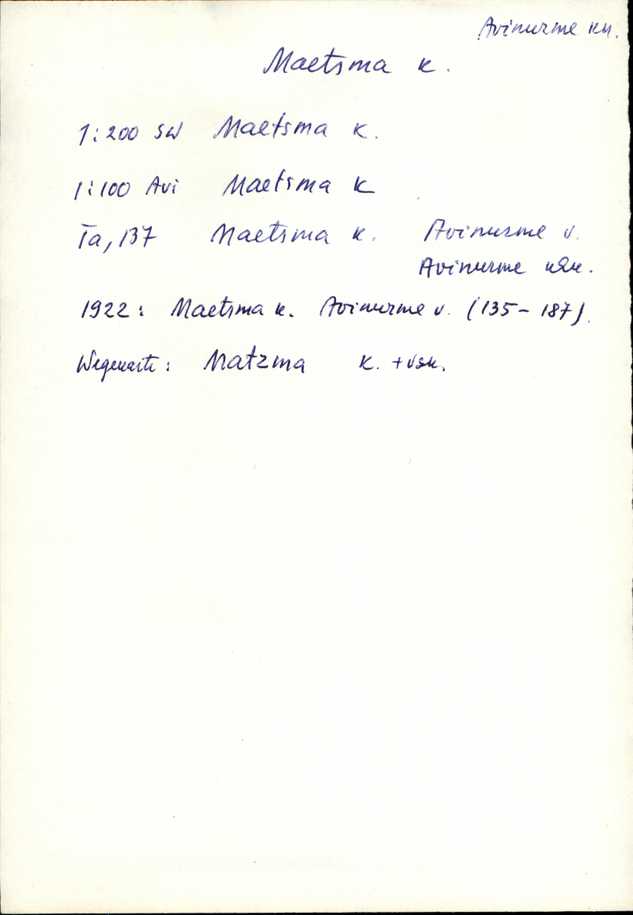 Avinurme kn.
Maetsma k.
1:200 SW Maetsma k.
1:100 Avi Maetsma k
Ta, 137 Maetsma k. Avinurme v.
Avinurme
1922: Maetsma k. Avinurme v. (135-187).
Matzma k. +